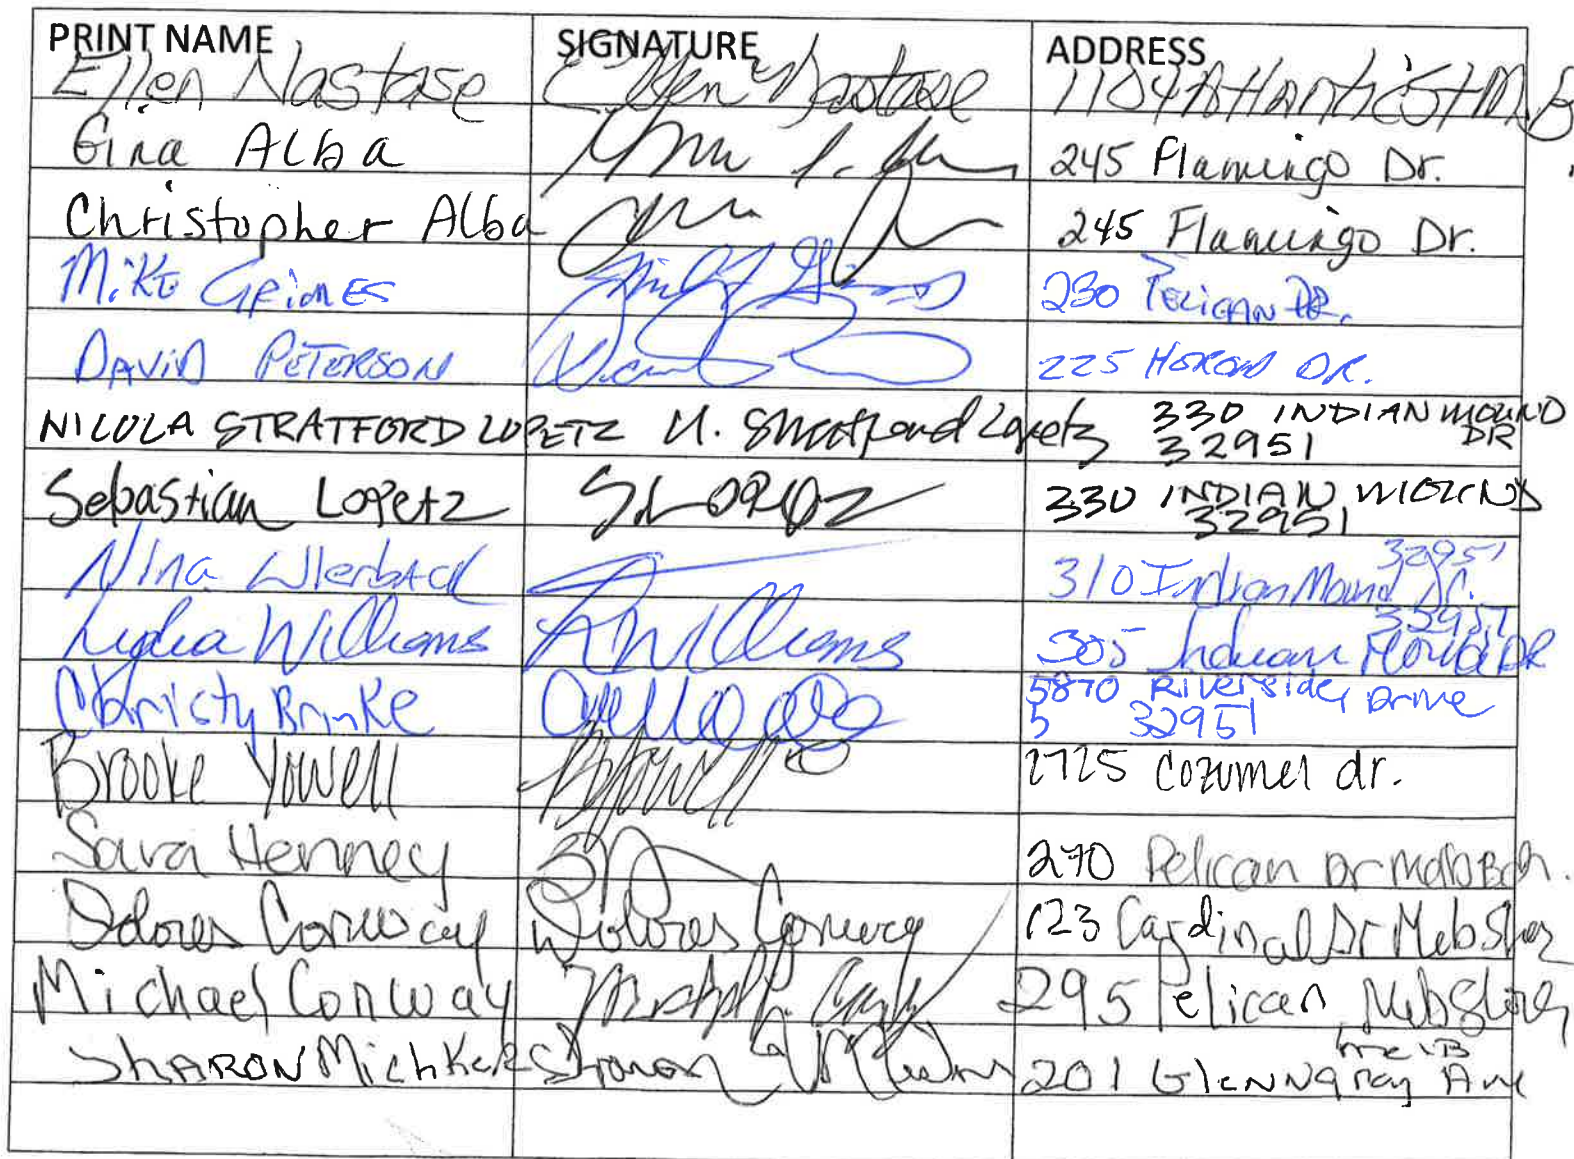 PRINT NAME SIGNATURE ADDRESS
Ellen Nastase Ellen Nastase 1104 Atlantic St M.B
Gina Alba 245 Flamingo Dr.
Christopher Alba 245 Flamingo Dr.
MiKE GRimES 230 PELICAN DR.
DAViD PETERSON 225 HERON DR.
NICOLA STRATFORD LOPETZ N. Stratford Lopetz 330 INDIAN MOUND DR
32951
Sebastian Lopetz S. LOPETZ 330 INDIAN MOUND
32951
Nina 32951
310 Indian Mound Dr.
Lydia Williams L Williams 32951
305 Indian Mound DR
Christy Brinke 5870 Riverside Drive
32951
Brooke Yowell BYowell 2725 Cozumel dr.
Sara Henney 270 Pelican Dr Melb Bch.
Dolores Conway Dolores Conway 123 Cardinal Dr
Michael Conway 295 Pelican
SHARON Sharon 201 Ave